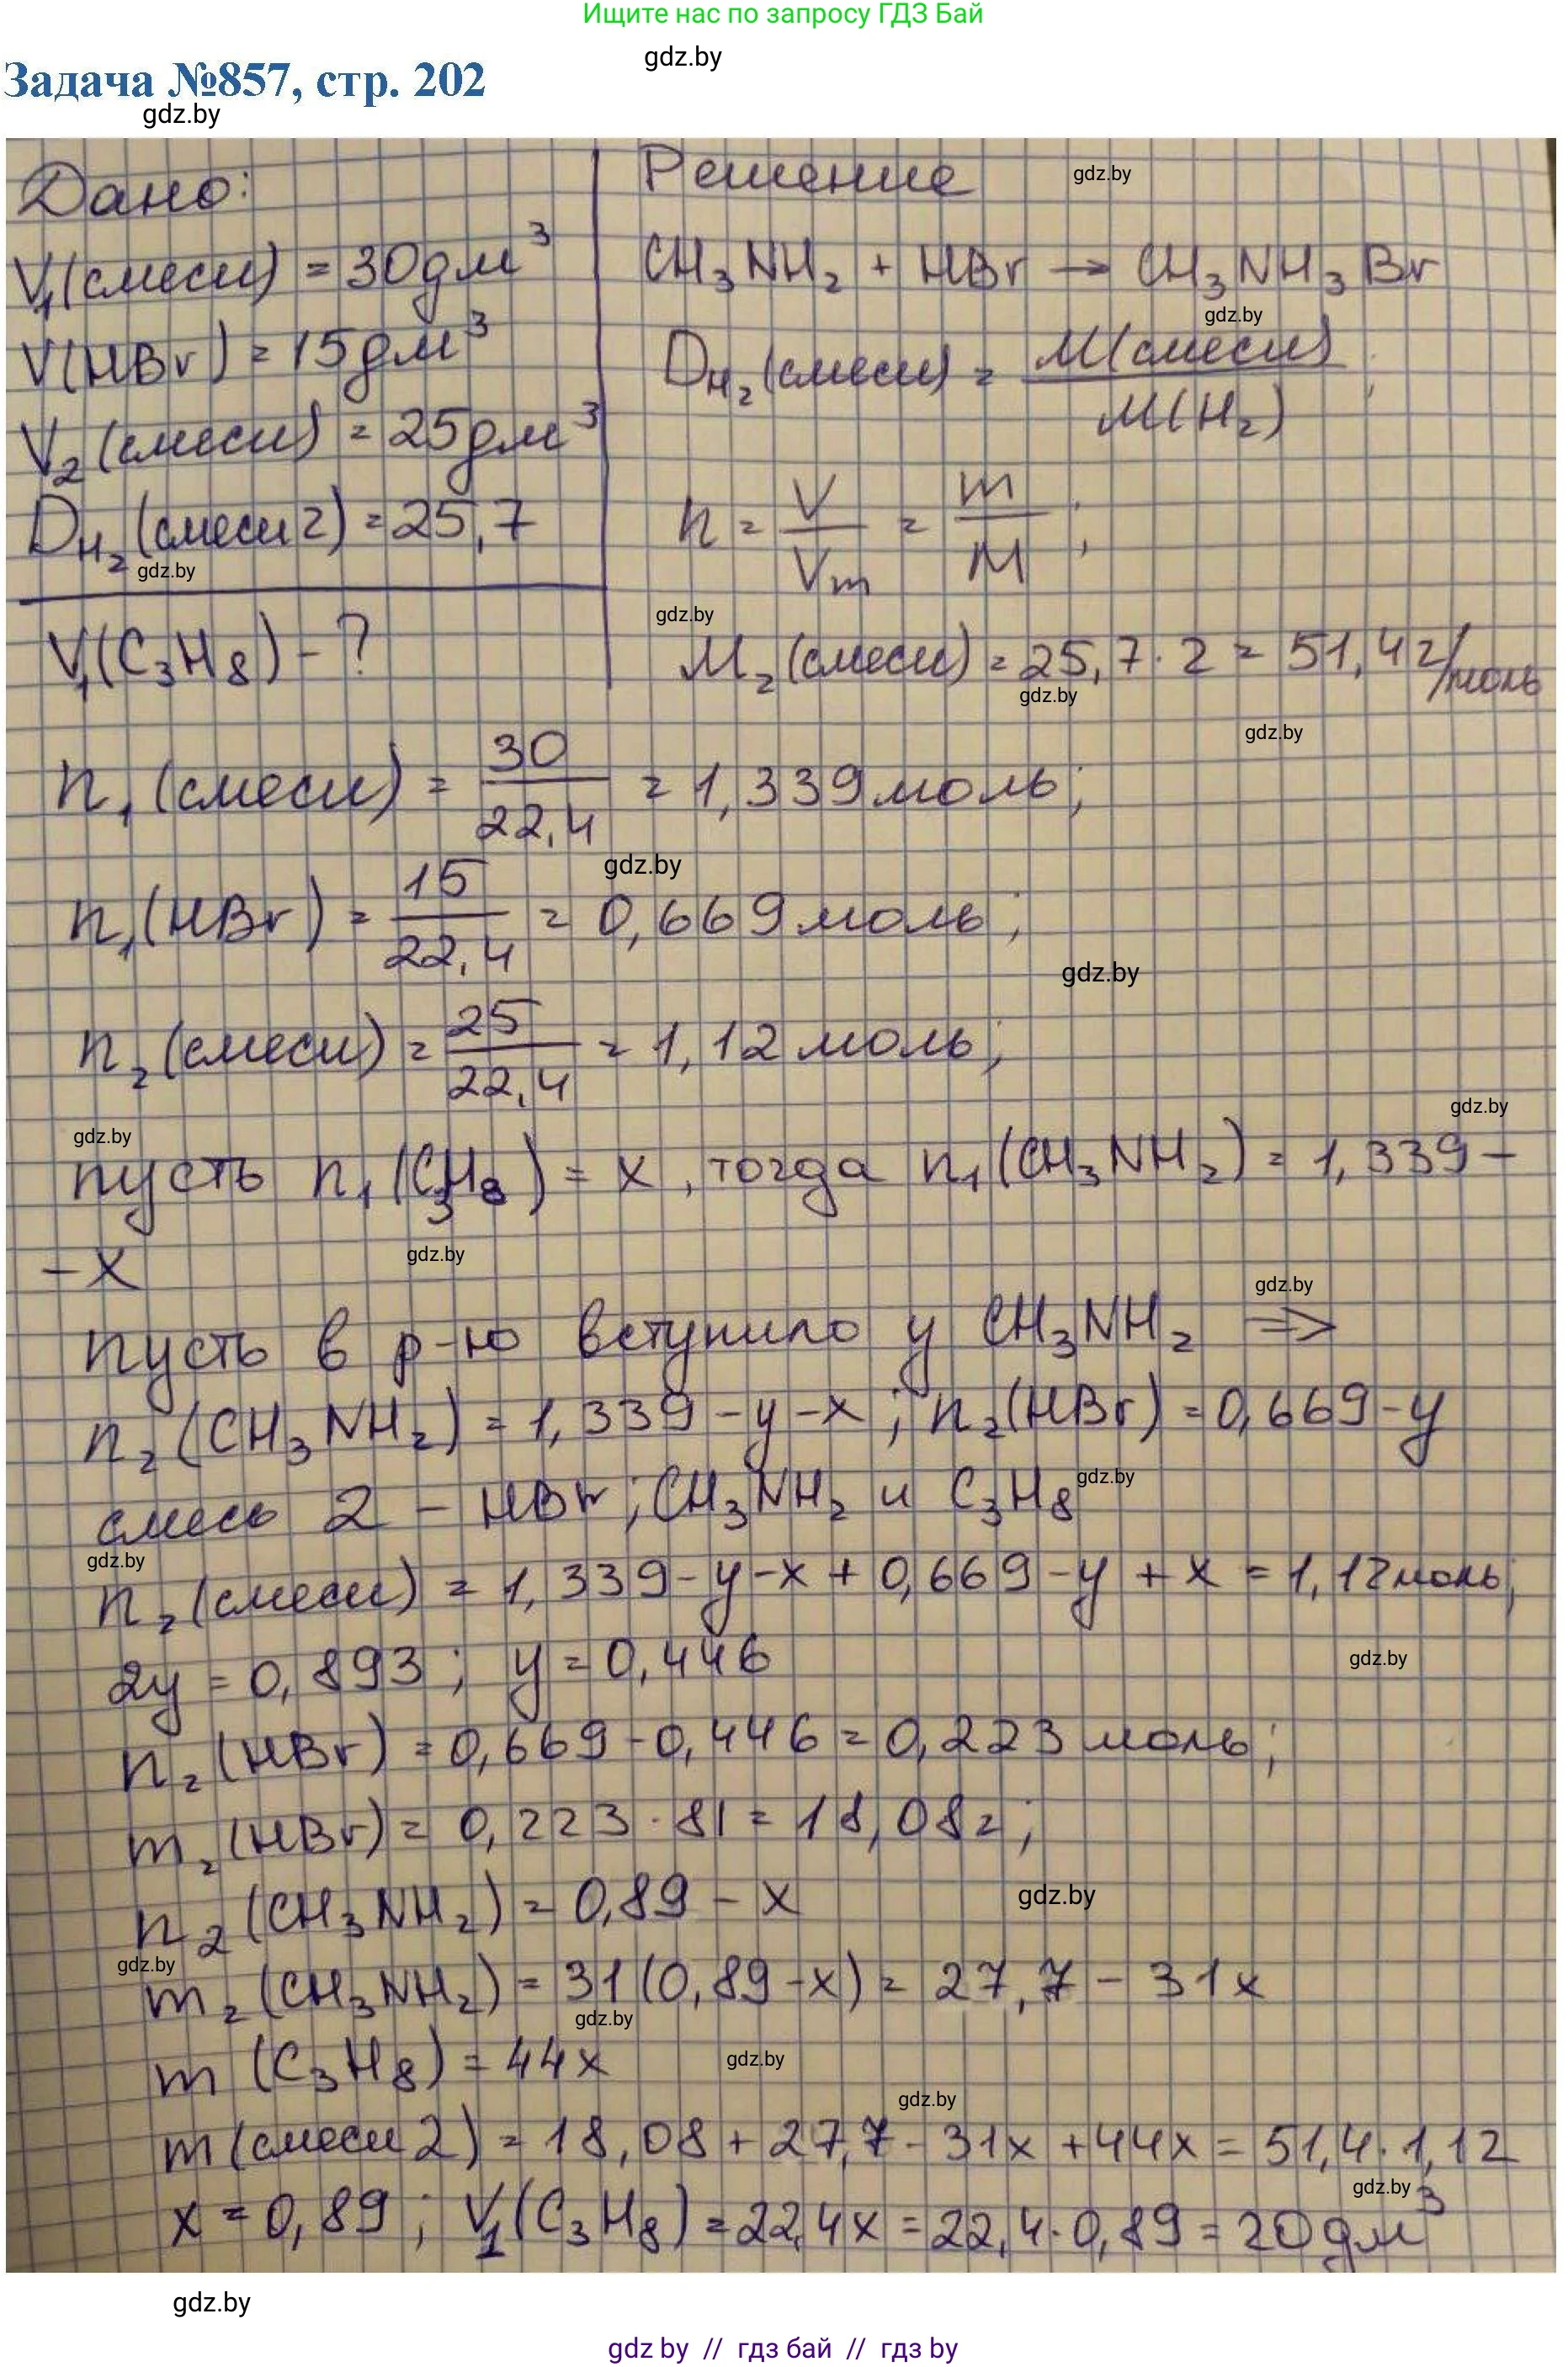 Ищите нас по запросу ГДЗ Бай
gdz.by
Задача №857, стр. 202
gdz.by
Дано:
V₁(смеси) = 30дм³
V(HBr) = 15дм³
V₂(смеси) = 25дм³
D_H₂(смеси 2) = 25,7
gdz.by
V₁(C₃H₈) - ?
Решение
gdz.by
CH₃NH₂ + HBr → CH₃NH₃Br
gdz.by
D_H₂(смеси) = M(смеси) / M(H₂) ;
n = V / Vm = m / M ;
gdz.by
M₂(смеси) = 25,7 · 2 = 51,4 г/моль
gdz.by
gdz.by
n₁(смеси) = 30 / 22,4 = 1,339 моль;
gdz.by
n₁(HBr) = 15 / 22,4 = 0,669 моль;
gdz.by
n₂(смеси) = 25 / 22,4 = 1,12 моль;
gdz.by
gdz.by
пусть n₁(C₃H₈) = x, тогда n₁(CH₃NH₂) = 1,339 -
- x
gdz.by
gdz.by
пусть в р-ю вступило y CH₃NH₂ ⇒
n₂(CH₃NH₂) = 1,339 - y - x ; n₂(HBr) = 0,669 - y
смесь 2 - HBr; CH₃NH₂ и C₃H₈
gdz.by
gdz.by
n₂(смеси) = 1,339 - y - x + 0,669 - y + x = 1,12 моль;
2y = 0,893 ; y = 0,446
gdz.by
n₂(HBr) = 0,669 - 0,446 = 0,223 моль;
m₂(HBr) = 0,223 · 81 = 18,08 г;
n₂(CH₃NH₂) = 0,89 - x
gdz.by
gdz.by
m₂(CH₃NH₂) = 31(0,89 - x) = 27,7 - 31x
gdz.by
m(C₃H₈) = 44x
gdz.by
gdz.by
m(смеси 2) = 18,08 + 27,7 - 31x + 44x = 51,4 · 1,12
gdz.by
x = 0,89 ; V₁(C₃H₈) = 22,4x = 22,4 · 0,89 = 20 дм³
gdz.by
gdz by // гдз бай // гдз by